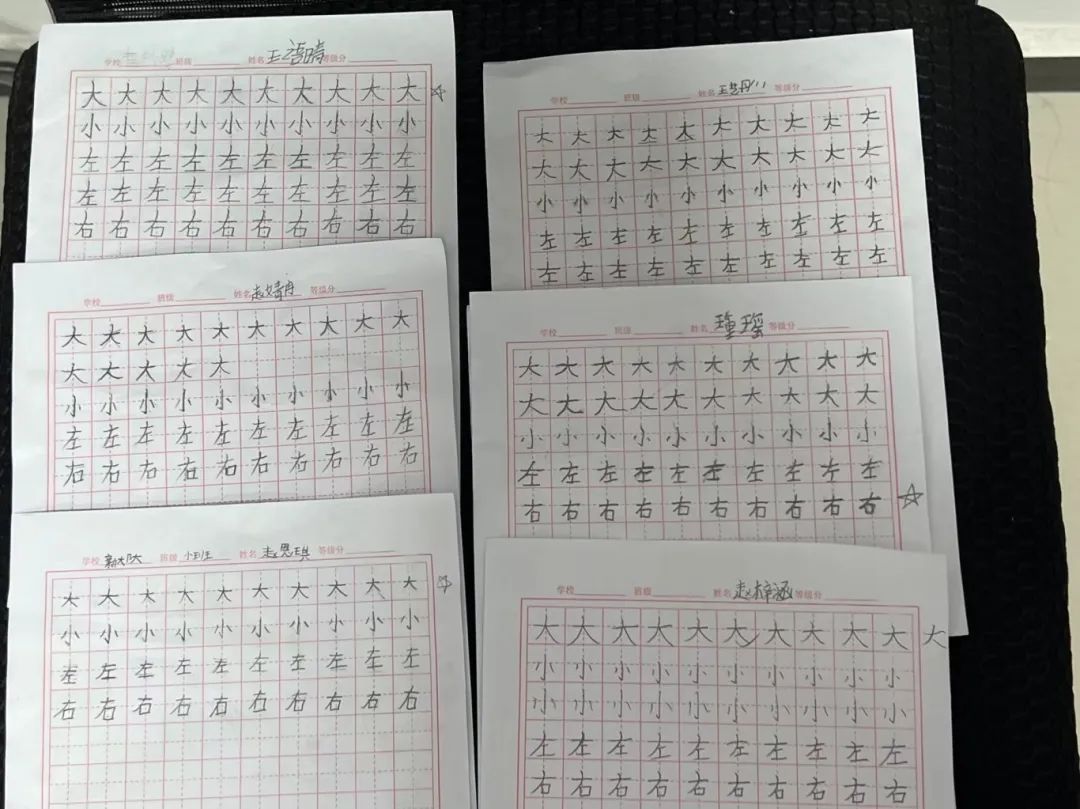 学校 班级 姓名 王语晴 等级分
大大大大大大大大大大
小小小小小小小小小小
左左左左左左左左左左
左左左左左左左左左左
右右右右右右右右右右
学校 班级 姓名 赵婧冉 等级分
大大大大大大大大大大
大大大大大
小小小小小小小小小小
左左左左左左左左左左
右右右右右右右右右右
学校 班级 小班 姓名 赵思琪 等级分
大大大大大大大大大大
小小小小小小小小小小
左左左左左左左左左左
右右右右右右右右右右
学校 班级 姓名 等级分
大大大大大大大大大大
大大大大大大大大大大
小小小小小小小小小小
左左左左左左左左左左
左左左左左左左左左左
学校 班级 姓名 瑾瑶 等级分
大大大大大大大大大大
大大大大大大大大大大
小小小小小小小小小小
左左左左左左左左左左
右右右右右右右右右右
学校 班级 姓名 赵梓涵 等级分
大大大大大大大大大大大
小小小小小小小小小小
小小小小小小小小小小
左左左左左左左左左左
右右右右右右右右右右